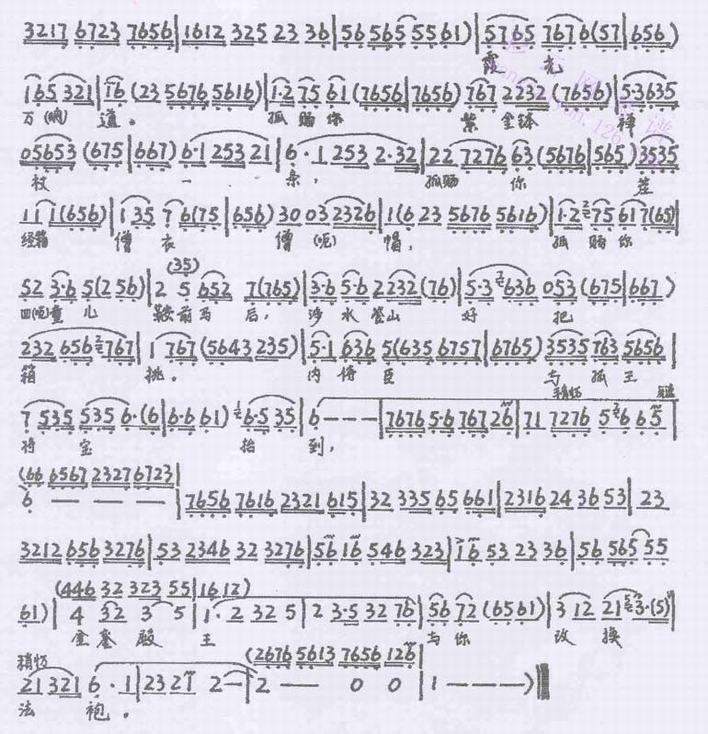 3217 6723 7656|1612 325 23 36|56 565 55 61)|5765 7676(57|656)
霞 光
165 321|16 (23 5676 5616)|1·2 75 61 (7656|7656) 767 2232 (7656)|5·3635
万(哟) 道。 孤 赐 你 紫 金 钵 禅
05653 (675|667) 6·1 253 21|6·1 253 2·32|22 7276 63 (5676|565) 3535
杖 一 条, 孤赐 你 差
11 1(656)|1 35 7 6(75|656) 30 03 2326|1(6 23 5676 5616)|1·2 2/75 617(65)
经箱 僧 衣 僧 (呃) 帽, 孤 赐 你
(35)
52 3·6 5(2 56)|2 5 652 7(765)|3·6 5·6 2232 (76)|5·3 636 053 (675|667)
四(呃)童 儿 鞍前马 后, 涉 水 登山 好 把
232 656 767|1 767 (5643 235)|5·1 636 5(635 6757|6765) 3535 763 5656|
箱 挑。 内 侍 臣 与 孤 王
稍慢
7 535 535 6·(6|6·6 61) 6·5 35|6 – – –|7676 5·6 767 26|71 7276 5 6 6 5
将 宝 抬 到,
(66 6567 2327 6723|
6 – – –|7656 7616 2321 615|32 335 65 661|2316 24 36 53|23
3212 656 3276|53 2346 32 3276|56 16 546 323|16 53 23 36|56 565 55
(446 32 323 55|16 12)
61)|4 32 3 5|1·2 32 5|2 3·5 32 76|56 72 (6561)|3 12 21 3·(5)
金 銮 殿 王 与 你 改 换
稍慢
(2676 5613 7656 126|
21 321 6·1|2321 2 –|2 – 0 0|1 – – –)
法 袍。